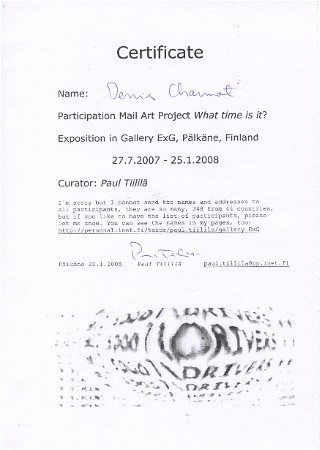 Certificate
Name: Dennis Charmot
Participation Mail Art Project What time is it?
Exposition in Gallery ExG, Pälkäne, Finland
27.7.2007 - 25.1.2008
Curator: Paul Tiililä
I'm sorry but I cannot send the names and addresses to
all participants, they are so many, 348 from 44 countries,
but if you like to have the list of participants, please
let me know. You can see the names in my pages, too:
http://personal.inet.fi/taide/paul.tiilila/gallery_ExG
Pälkäne 20.1.2008 Paul Tiililä paul.tiilila@pp.inet.fi
DRIVERS
DRIVERS